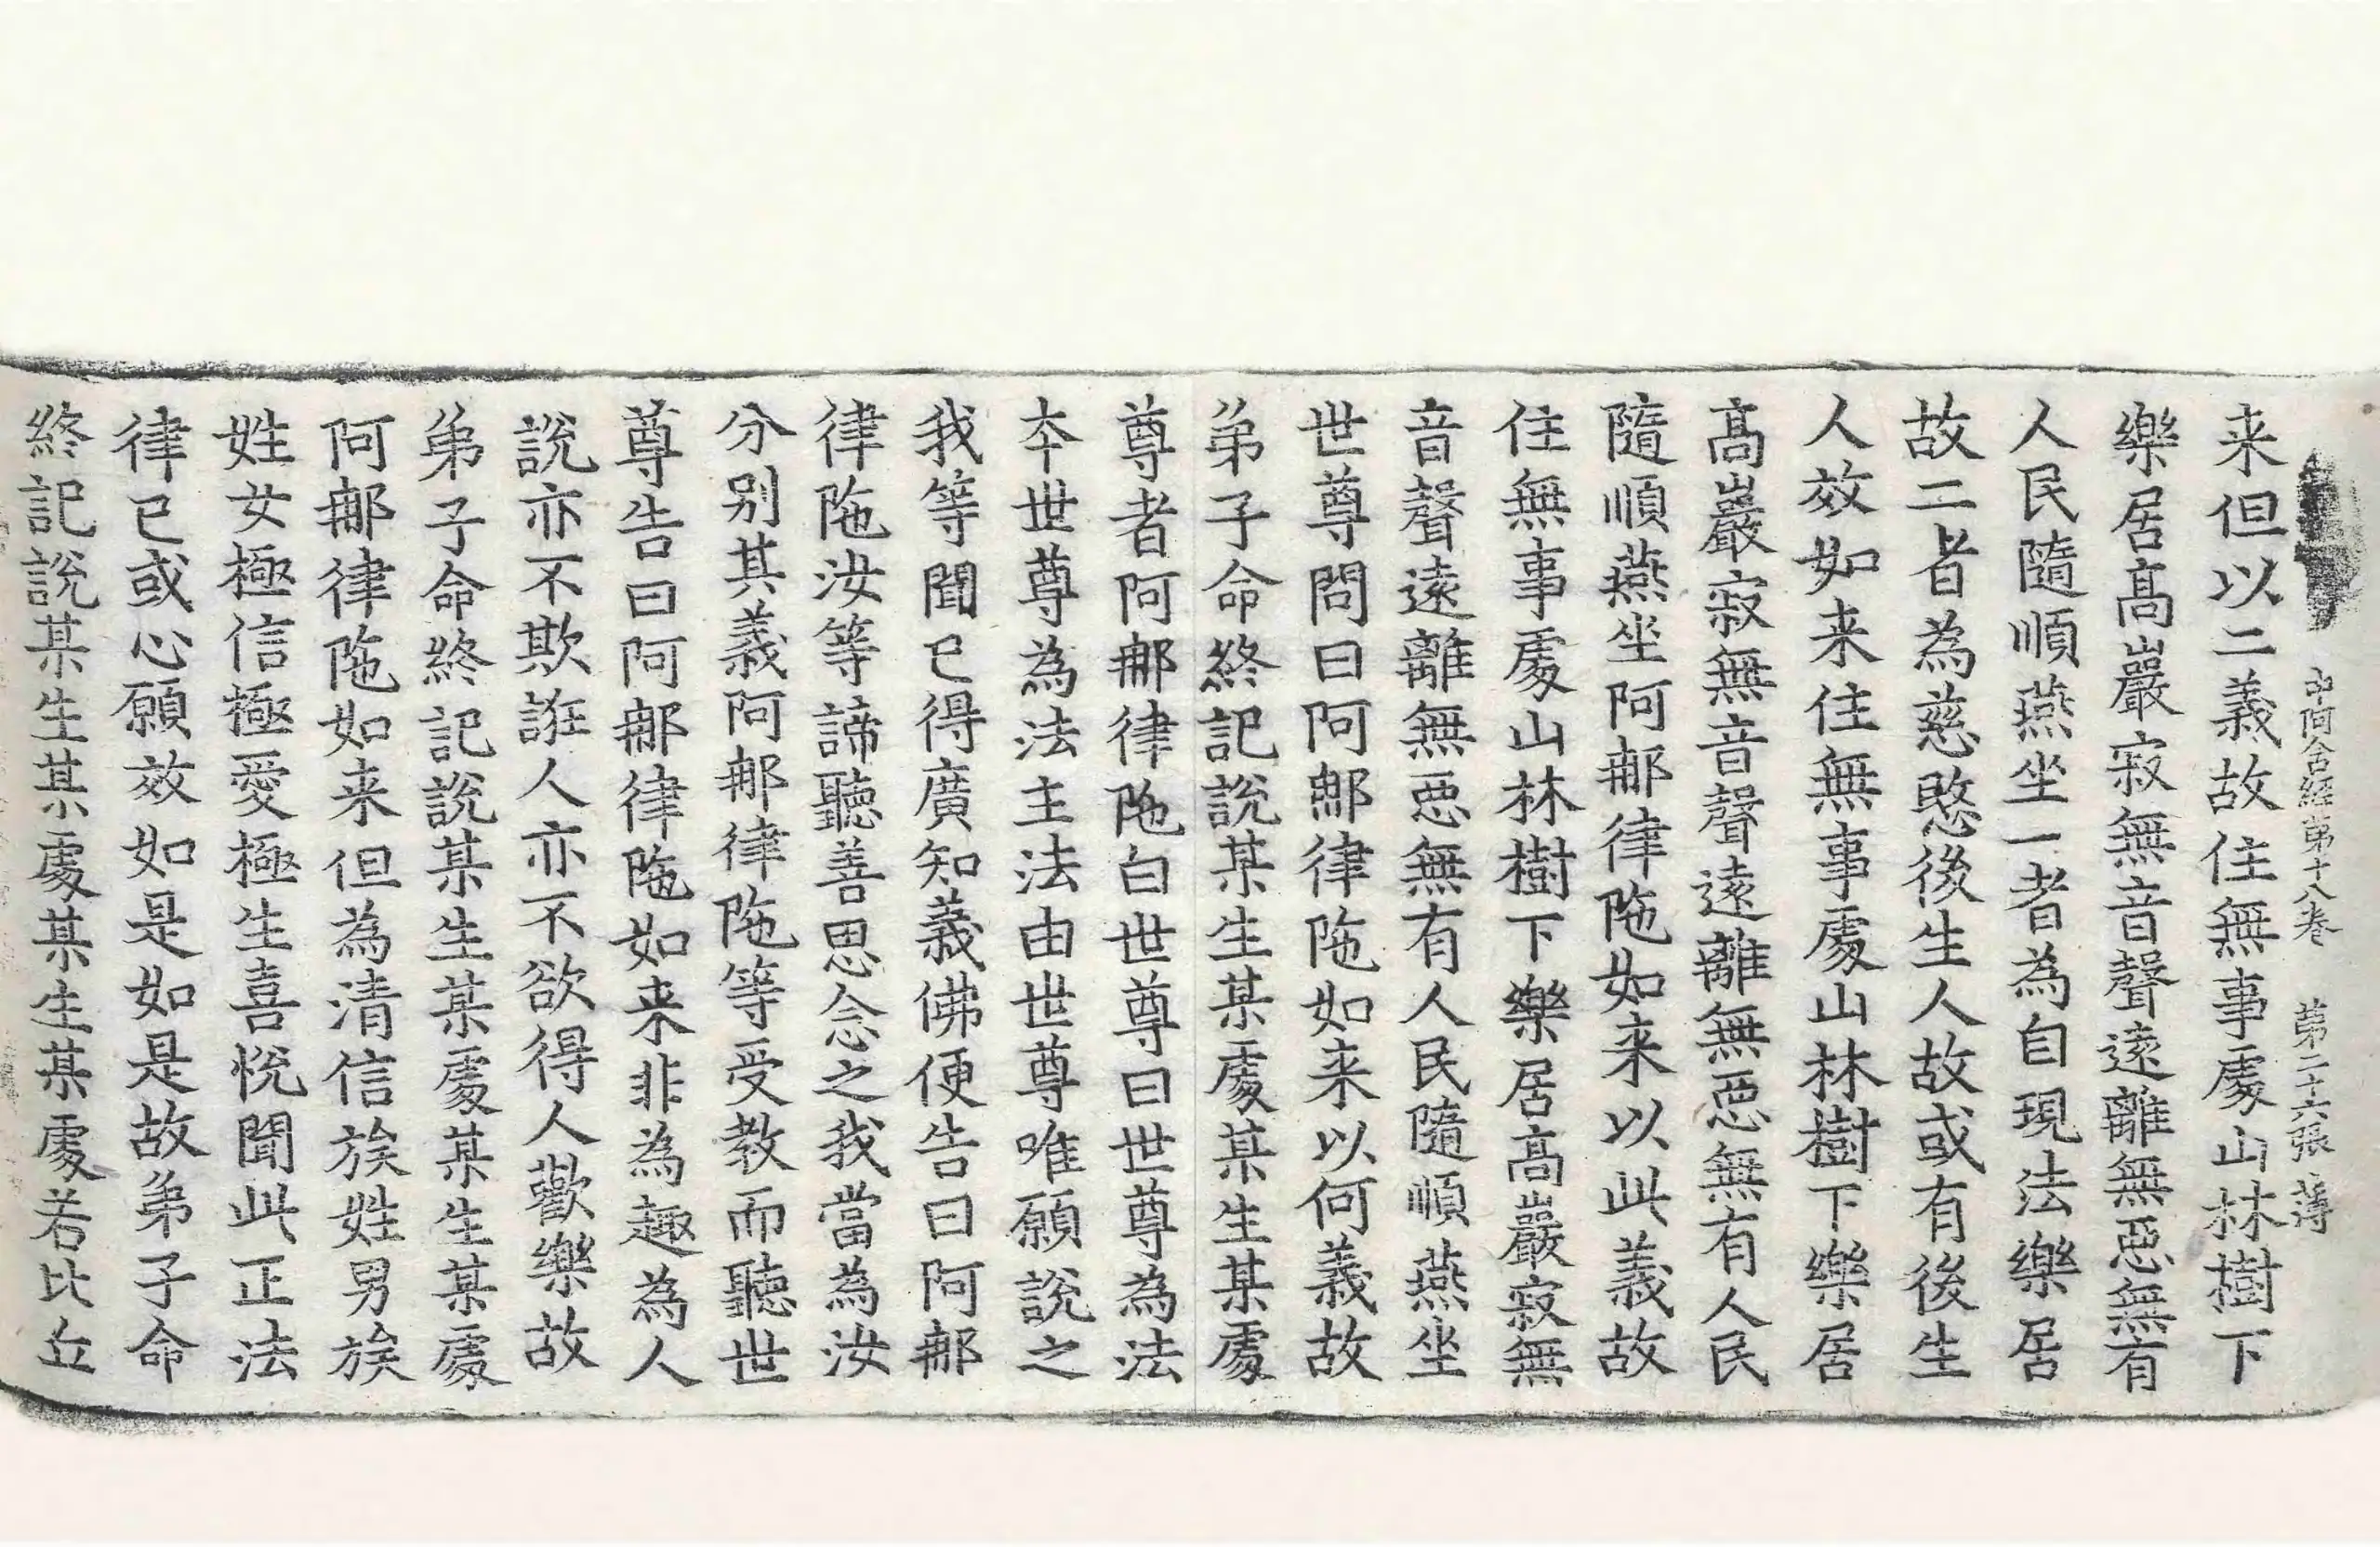 中阿含經第十八卷 第二十六張 薄
来但以二義故住無事處山林樹下
樂居髙巖寂無音聲遠離無惡無有
人民隨順燕坐一者為自現法樂居
故二者為慈愍後生人故或有後生
人效如来住無事處山林樹下樂居
髙巖寂無音聲遠離無惡無有人民
隨順燕坐阿那律陁如来以此義故
住無事處山林樹下樂居髙巖寂無
音聲遠離無惡無有人民隨順燕坐
世尊問曰阿那律陁如来以何義故
弟子命終記說某生某處某生某處
尊者阿那律陁白世尊曰世尊為法
本世尊為法主法由世尊唯願說之
我等聞已得廣知義佛便告曰阿那
律陁汝等諦聽善思念之我當為汝
分别其義阿那律陁等受教而聽世
尊告曰阿那律陁如来非為趣為人
說亦不欺誑人亦不欲得人歡樂故
弟子命終記說某生某處某生某處
阿那律陁如来但為清信族姓男族
姓女極信極愛極生喜悅聞此正法
律已或心願效如是如是故弟子命
終記說某生某處某生某處若比丘